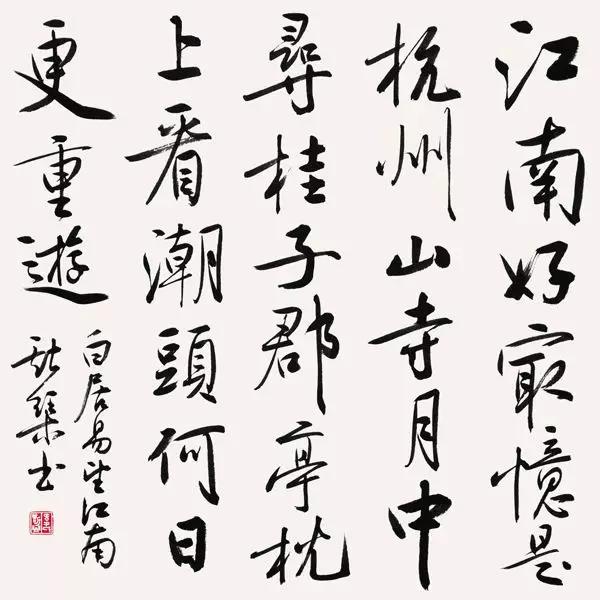 江南好㝡憶是
杭州山寺月中
尋桂子郡亭枕
上看潮頭何日
更重遊
白居易望江南
书